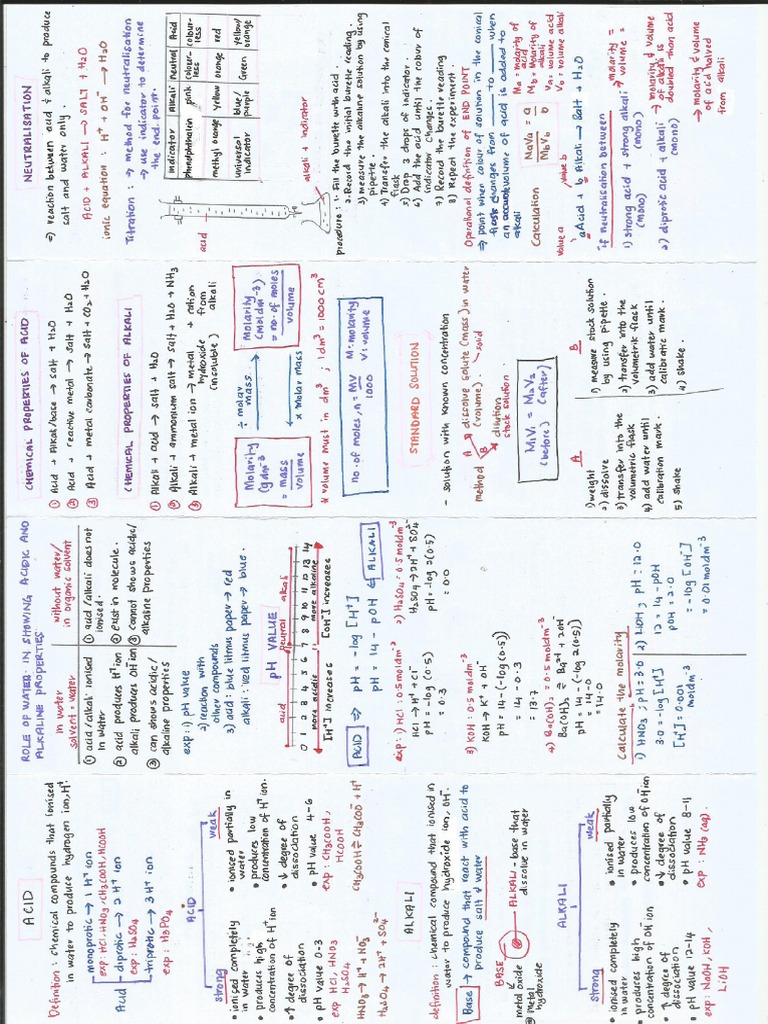 ACID
Definition : chemical compounds that ionised
in water to produce hydrogen ion, H⁺.
monoprotic → 1 H⁺ ion
exp : HCl, HNO₃, CH₃COOH, HCOOH
Acid
diprotic → 2 H⁺ ion
exp : H₂SO₄
triprotic → 3 H⁺ ion
exp : H₃PO₄
ACID
strong
• ionised completely
in water
• produces high
concentration of H⁺ ion
• ↑ degree of
dissociation
• pH value 0-3
exp HCl, HNO₃
H₂SO₄
HNO₃ → H⁺ + NO₃⁻
H₂SO₄ → 2H⁺ + SO₄²⁻
weak
• ionised partially in
water
• produces low
concentration of H⁺ ion.
• ↓ degree of
dissociation
• pH value 4-6
exp : CH₃COOH,
HCOOH
CH₃COOH ⇌ CH₃COO⁻ + H⁺
ALKALI
definition : chemical compound that ionised in
water to produce hydroxide ion, OH⁻.
Base → compound that react with acid to
produce salt & water
BASE
ALKALI - base that
dissolve in water
metal oxide
@ metal
hydroxide
ALKALI
strong
• ionised completely
in water
• produces high
concentration of OH⁻ ion
• ↑ degree of
dissociation
• pH value 12-14
exp : NaOH, KOH,
LiOH
weak
• ionised partially
in water
• produces low
concentration of OH⁻ ion
• ↓ degree of
dissociation
• pH value 8-11
exp : NH₃ (aq).
ROLE OF WATER IN SHOWING ACIDIC AND
ALKALINE PROPERTIES
in water
solvent = water
① acid/alkali ionised
in water
② acid produces H⁺ ion
alkali produces OH⁻ ion
③ can shows acidic/
alkaline properties
without water/
in organic solvent
① acid/alkali does not
ionised.
② exist in molecule.
③ cannot shows acidic/
alkaline properties
exp : 1) pH value
2) reaction with
other compounds
3) acid : blue litmus paper → red
alkali : red litmus paper → blue.
pH VALUE
acid neutral alkali
0 1 2 3 4 5 6 7 8 9 10 11 12 13 14
more acidic more alkaline
[H⁺] increases [OH⁻] increases
ACID ⇒ pH = -log [H⁺]
pH = 14 - pOH ⇐ ALKALI
exp : 1) HCl : 0.5 moldm⁻³
HCl → H⁺ + Cl⁻
pH = -log (0.5)
= 0.3
2) H₂SO₄ : 0.5 moldm⁻³
H₂SO₄ → 2H⁺ + SO₄²⁻
pH = -log 2(0.5)
= 0.0
3) KOH : 0.5 moldm⁻³
KOH → K⁺ + OH⁻
pH = 14 - (-log (0.5))
= 14 - 0.3
= 13.7
4) Ba(OH)₂ = 0.5 moldm⁻³
Ba(OH)₂ ⇌ Ba²⁺ + 2OH⁻
pH = 14 - (-log 2(0.5))
= 14 - 0
= 14.0
Calculate the molarity
1) HNO₃ ; pH = 3.0
3.0 = -log [H⁺]
[H⁺] = 0.001
moldm⁻³
2) LiOH ; pH = 12.0
12 = 14 - pOH
pOH = 2.0
= -log [OH⁻]
= 0.01 moldm⁻³
CHEMICAL PROPERTIES OF ACID
① Acid + Alkali/base → salt + H₂O
② Acid + reactive metal → salt + H₂
③ Acid + metal carbonate → salt + CO₂ + H₂O
CHEMICAL PROPERTIES OF ALKALI
① Alkali + acid → salt + H₂O
② Alkali + ammonium salt → salt + H₂O + NH₃
③ Alkali + metal ion → metal hydroxide (insoluble) + cation from alkali
Molarity
(gdm⁻³)
= mass
volume
÷ molar
mass
× molar mass
Molarity
(moldm⁻³)
= no. of moles
volume
* volume must in dm³ ; 1dm³ = 1000cm³
no. of moles, n = MV
1000
M : molarity
V : volume
STANDARD SOLUTION
- solution with known concentration
method A → dissolve solute (mass) in water
(volume). solid
B → dilution
stock solution
M₁V₁ = M₂V₂
(before) (after)
A
1) weight
2) dissolve
3) transfer into the
volumetric flask
4) add water until
calibration mark.
5) shake
B
1) measure stock solution
by using pipette.
2) transfer into the
volumetric flask
3) add water until
calibratic mark.
4) shake.
NEUTRALISATION
⇒ reaction between acid & alkali to produce
salt and water only.
ACID + ALKALI → SALT + H₂O
ionic equation : H⁺ + OH⁻ → H₂O
Titration : ⇒ method for neutralisation
⇒ use indicator to determine
the end-point.
Indicator Alkali Neutral Acid
Phenolphthalein pink colour-less colour-less
methyl orange yellow orange red
universal indicator blue/purple Green yellow/orange
acid
alkali + indicator
procedure : 1. Fill the burette with acid.
2. Record the initial burette reading.
3) measure the alkaline solution by using
pipette.
4) Transfer the alkali into the conical
flask
5) Drop 3 drops of indicator.
6) Add the acid until the colour of
indicator changes.
7) Record the burette reading
8) Repeat the experiment.
Operational definition of END POINT
⇒ point when colour of solution in the conical
flask changes from ___ to ___ when
volume of acid is added to
alkali
Calculation
MaVa = a
MbVb b
Ma = molarity of
acid
Mb = Molarity of
alkali
Va = volume acid
Vb = volume alkali
value a value b
aAcid + bAlkali → Salt + H₂O
if neutralisation between
1) strong acid + strong alkali
(mono) (mono)
⇒ molarity =
volume =
2) diprotic acid + alkali
(mono)
→ molarity & volume
of alkali is
doubled than acid
→ molarity & volume
of acid halved
from alkali